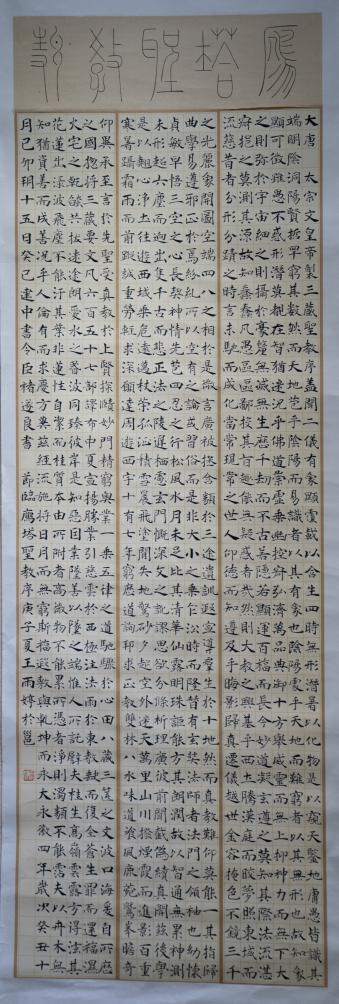 鴈塔聖教
大唐 太宗文皇帝製三藏聖教序蓋聞二儀有象顯覆載以含生四時無形潛寒暑以化物是以窺天鑒地庸愚皆識其
端明陰洞陽賢哲罕窮其數然而天地苞乎陰陽而易識者以其有象也陰陽處乎天地而難窮者以其無形也故知象
顯可徵雖愚不惑形潛莫覩在智猶迷況乎佛道崇虛乘幽控寂弘濟萬品典御十方舉威靈而無上抑神力而無下大
之則彌於宇宙細之則攝於豪釐無滅無生歷千劫而不古若隱若顯運百福而長今妙道凝玄遵之莫知其際法流湛
寂挹之莫測其源故知蠢蠢凡愚區區庸鄙投其旨趣能無疑惑者哉然則大教之興基乎西土騰漢庭而皎夢照東域而
流慈昔者分形分跡之時言未馳而成化當常現常之世人仰德而知遵及乎晦影歸真遷儀越世金容掩色不鏡三千
之光麗象開圖空端四八之相於是微言廣被拯含類於三途遺訓遐宣導群生於十地然而真教難仰莫能一其指歸
曲學易遵邪正於焉紛糾所以空有之論或習俗而是非大小之乘乍沿時而隆替有玄奘法師者法門之領袖也幼懷
貞敏早悟三空之心長契神情先苞四忍之行松風水月未足比其清華仙露明珠詎能方其朗潤故以智通無累神測
未形超六塵而迥出凝心內境悲正法之陵遲栖慮玄門慨深文之訛謬思欲分條析理廣彼前聞截偽續真開茲後學
是以翹心淨土往遊西域乘危遠邁杖策孤征積雪晨飛塗間失地驚砂夕起空外迷天萬里山川撥煙霞而進影百重
寒暑躡霜雨而前蹤誠重勞輕求深願達周遊西宇十有七年窮歷道邦詢求正教雙林八水味道飡風鹿菀鷲峯瞻奇
仰異承至言於先聖受真教於上賢探賾妙門精窮奧業一乘五律之道馳驟於心田八藏三篋之文波濤於口海爰自所歷
之國惣將三藏要文凡六百五十七部譯布中夏宣揚勝業引慈雲於西極注法雨於東垂聖教缺而復全蒼生罪而還福濕
火宅之乾燄共拔迷途朗愛水之昏波同臻彼岸是知惡因業墜善以緣昇昇墜之端惟人所託譬夫桂生高嶺雲露方得泫其
花蓮出淥波飛塵不能汙其葉非蓮性自潔而桂質本貞良由所附者高則微物不能累所憑者淨則濁類不能霑夫以卉木無
知猶資善而成善況乎人倫有識不緣慶而求慶方冀茲經流施將日月而無窮斯福遐敷與乾坤而永大永徽四年歲次癸丑十
月己卯朔十五日癸巳建中書令臣褚遂良書 節臨鴈塔聖教序庚子夏王雨婷於邕